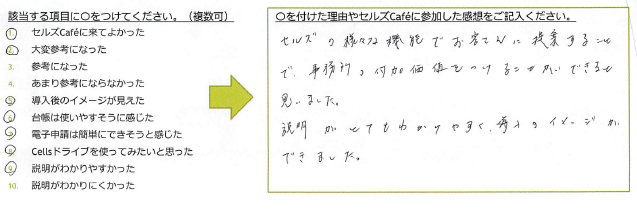 該当する項目に○をつけてください。（複数可）
1. セルズCaféに来てよかった
2. 大変参考になった
3. 参考になった
4. あまり参考にならなかった
5. 導入後のイメージが見えた
6. 台帳は使いやすそうに感じた
7. 電子申請は簡単にできそうと感じた
8. Cellsドライブを使ってみたいと思った
9. 説明がわかりやすかった
10. 説明がわかりにくかった
○を付けた理由やセルズCaféに参加した感想をご記入ください。
セルズの様々な機能でお客さんに提案すること
で、事務所の付加価値をつけることができると
思いました。
説明がとてもわかりやすく、導入のイメージが
できました。